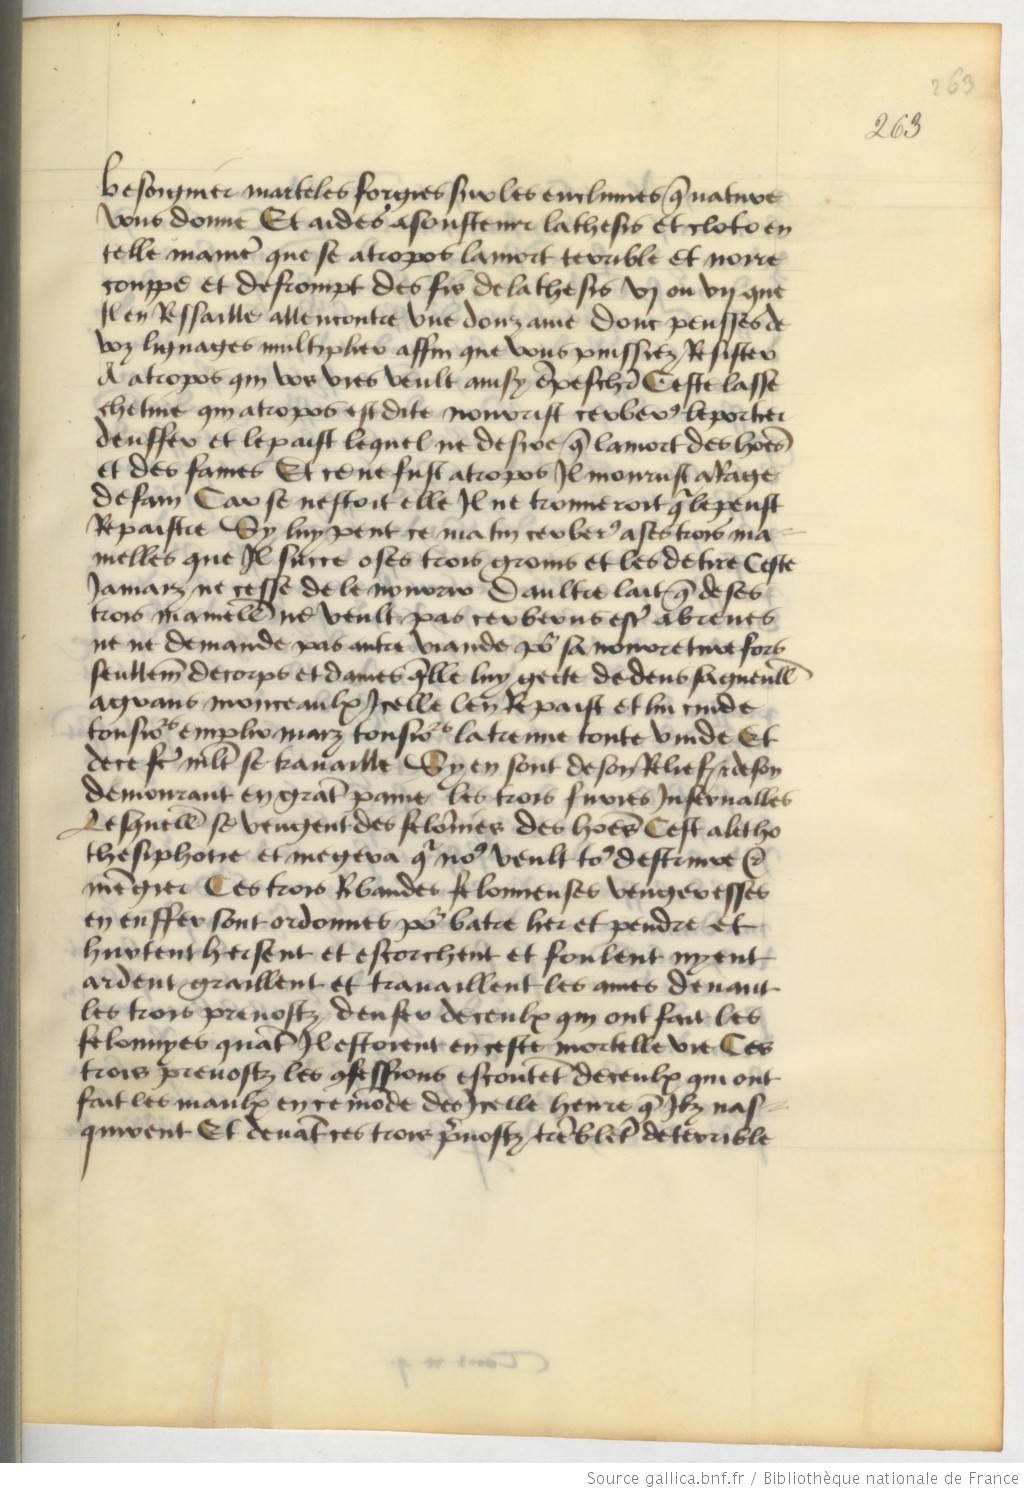 263
263
besongnier marteles forgies sur les enclumes q̃ nature
vous donne Et aides a soustenir lathesis et cloto en
telle manie͛ que se atropos la mort terrible et noire
couppe et defrompt des fis de lathesis vj ou vij que
Il en Ressaille allencontre vne douzaine Donc pensses de
voz lignages multiplier affin que vous puissiez Resister
A atropos qui vos vies veult ainsy ẽpeschr̃ Ceste lasse
chetiue qui atropos est dite nourrist cerber⁹ le portier
denffer et le paist lequel ne desire q̃ la mort des hões̃
et des fames Et ce ne fust atropos Il mourust a Rage
de fain Car se nestoit elle Il ne trouueroit q̃ le peust
Repaistre Sy luy pent ce matin cerber⁹ a ses trois ma-
melles que Il succe o ses trois groins et les detire Ceste
Jamaiz ne cesse de le nourrir Daultre lait q̃ de ses
trois mamell̃ ne veult pas cerberus est͛ abreues
ne ne demande pas autre viande po͛ sa nourreture fors
seullem̃ de corps et dames q̃lle luy gecte dedens sa gueull̃
a grans monceaulx Icelle len Repaist et lui cuide
tousio͛s emplir maiz tousio͛s la treuue toute vuide Et
de ce fẽ mlt̃ se trauaille Sy en sont de son Relief et de son
demourant en grãt paine les trois furies Infernalles
Lesquell̃ se vengent des felõnies des hões̃ Cest aletho
thesiphone et megera q̃ no⁹ veult to⁹ destruire &
mẽgier Ces trois Ribaudes felonneuses vengeresses
en enffer sont ordonnes po͛ batre lier et pendre et
hurtent hersent et escorchent et foulent nyent
ardent graillent et trauaillent les ames deuant
les trois preuostz denfer de ceulx qui ont fait les
felonnyes quãt Il estoient en ceste mortelle vie Ces
trois preuostz les ꝯfessions escoutẽt de ceulx qui ont
fait les maulx en ce mõde des Icelle heure q̃ Ilz nas-
quirent Et deuãt ces trois p̃uostz trẽblẽt de terrible
Source gallica.bnf.fr / Bibliothèque nationale de France